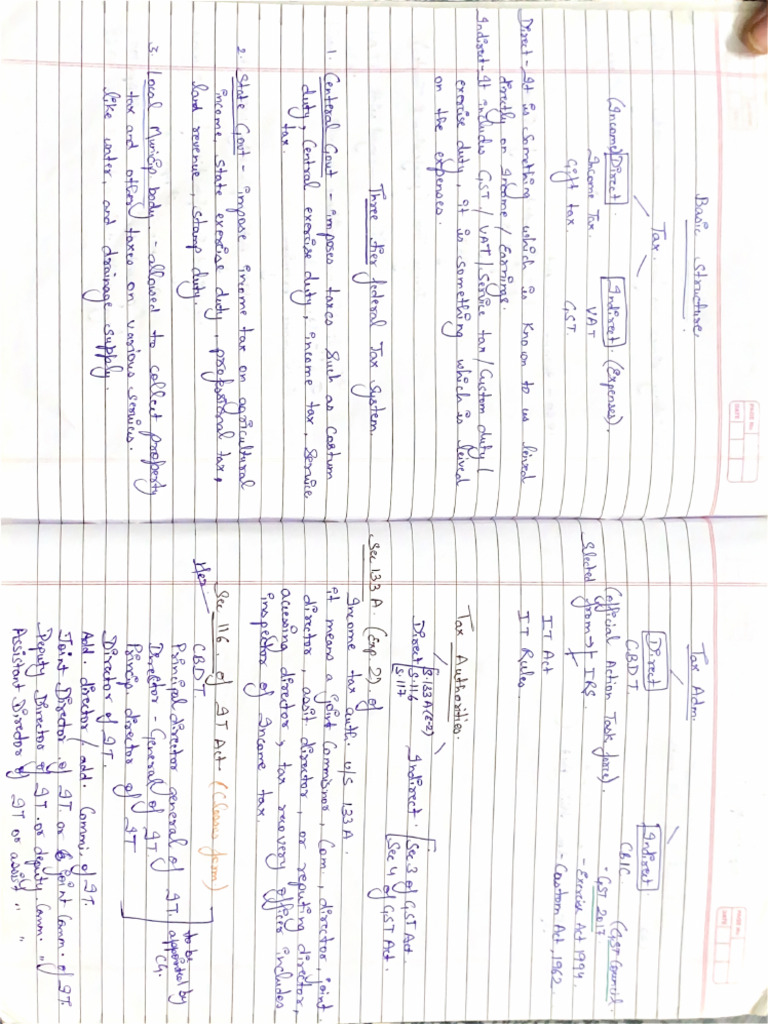 PAGE NO.
DATE
Basic Structure.
Tax.
(Income) Direct. Indirect. (Expenses).
Income Tax. VAT
Gift tax. GST
Direct - It is something which is known to us leived
directly on Income / Earnings.
Indirect - It includes GST / VAT / Service tax / Custom duty /
exercise duty, it is something which is leived
on the expenses.
Three tier federal Tax System.
1. Centeral Govt - imposes taxes such as costum
duty, Central exercise duty, income tax, Service
tax.
2. State Govt - impose income tax on agricultural
income, State exercise duty, professional tax,
land revenue, stamp duty.
3. Local Municip body. - allowed to collect property
tax and other taxes on various services.
like water, and drainage supply.
PAGE NO.
DATE
Tax Adm.
Direct Indirect.
CBDT. CBIC. (GST Council.
(official Action Task force). - GST 2017
Selected from → IRS. - Exercise Act 1944
IT Act - Custom Act, 1962.
IT Rules
Tax Authorities.
Direct S.133A(6-2) Indirect. Sec 3 of GST Act.
S.116 Sec 4 of GST Act.
S.117
Sec 133 A. (Exp 2). of
Income tax auth. u/s 133A.
it means a joint Commisnor, Com., director, joint
director, assit director, or reputing director,
accessing director, tax recovery officer includes
inspector of Income tax.
Sec 116. of IT Act. (Classes form)
Her CBDT.
Principal director general of IT. to be
Director - General of IT. appointed by
Princip director of IT CG.
Director of IT.
Add. director / add. Commi. of IT.
Joint Director of IT or joint Comm. of IT.
Deputy Director of IT. or deputy Comm. "
Assistant Director of IT or assist " "